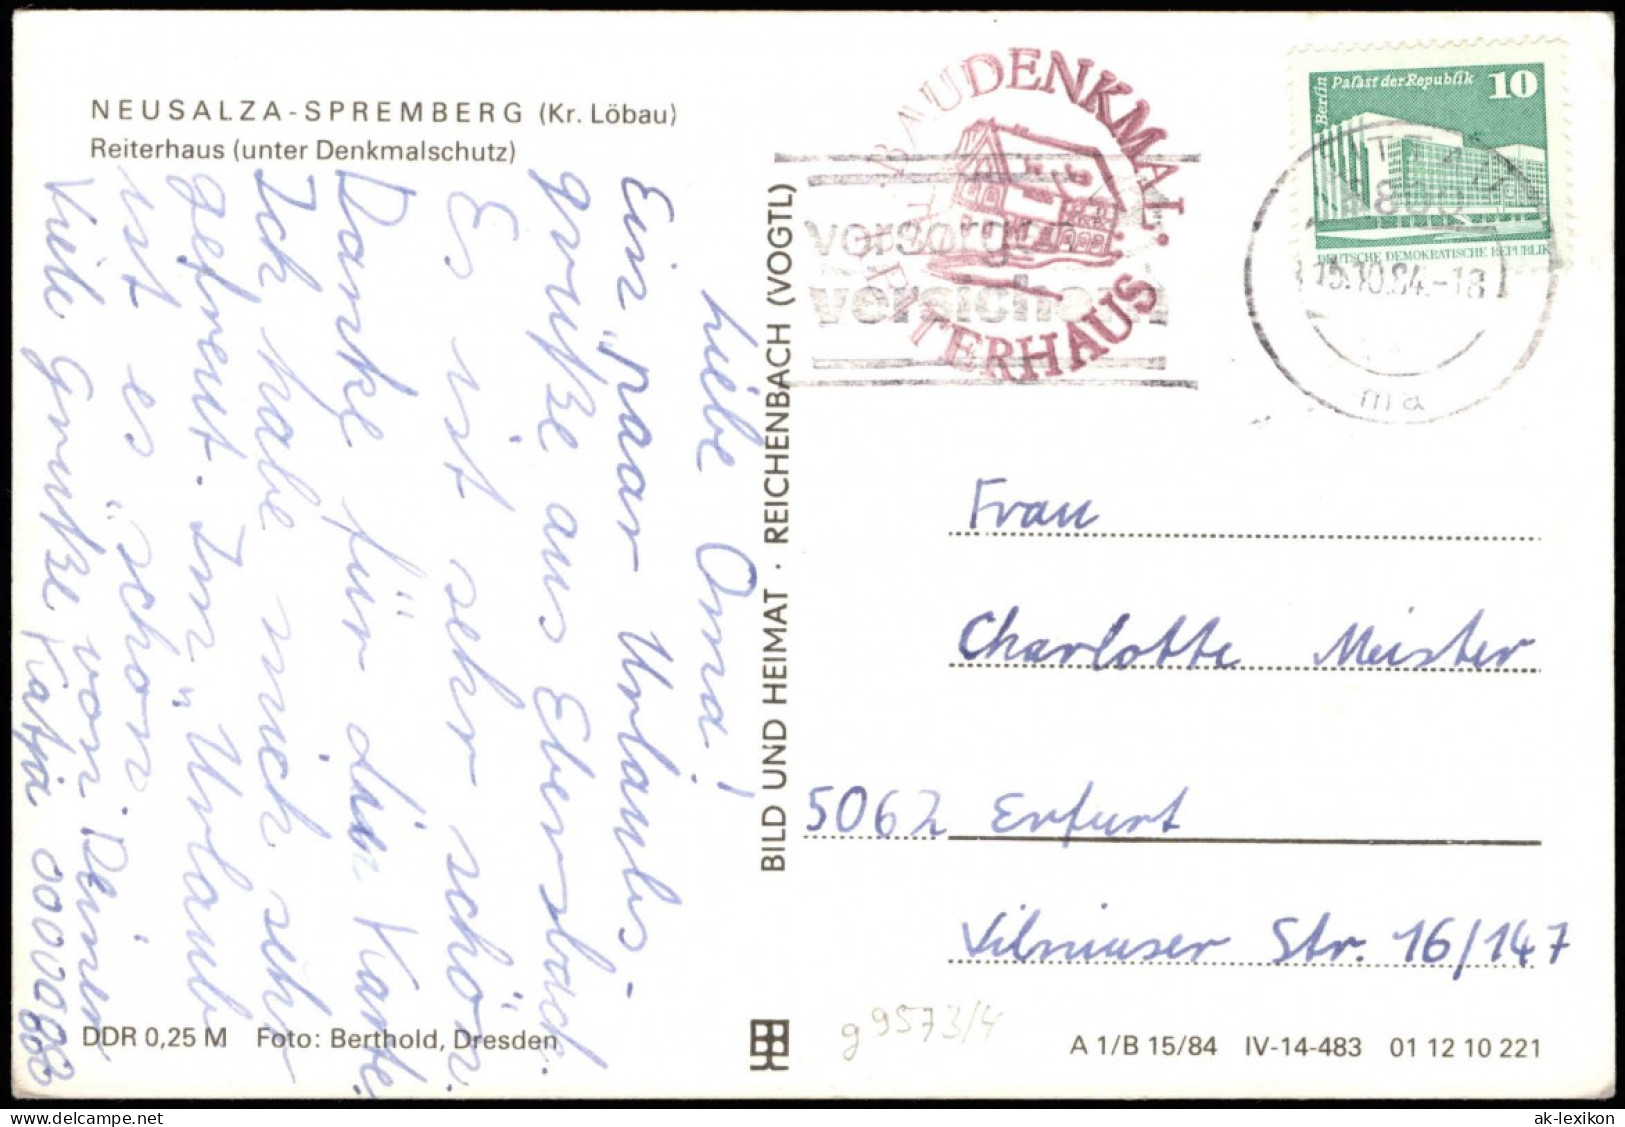 NEUSALZA-SPREMBERG (Kr. Löbau)
Reiterhaus (unter Denkmalschutz)
liebe Oma!
Ein "paar Urlaubs-
grüße aus Ebersbach.
Es ist sehr schön.
Danke für die Karte.
Ich habe mich sehr
gefreut. Im "Urlaub
ist es "schön
Viele Grüße von Deiner
Katja 00000000
DDR 0,25 M Foto: Berthold, Dresden
BILD UND HEIMAT · REICHENBACH (VOGTL)
BAUDENKMAL.
REITERHAUS
vorsorgen
versichern
Berlin Palast der Republik 10
DEUTSCHE DEMOKRATISCHE REPUBLIK
ZITTAU
8800
15.10.84.-18
ma
Frau
Charlotte Meister
5062 Erfurt
Vilniuser Str. 16/147
g9573/4
A 1/B 15/84 IV-14-483 01 12 10 221
www.delcampe.net
ak-lexikon